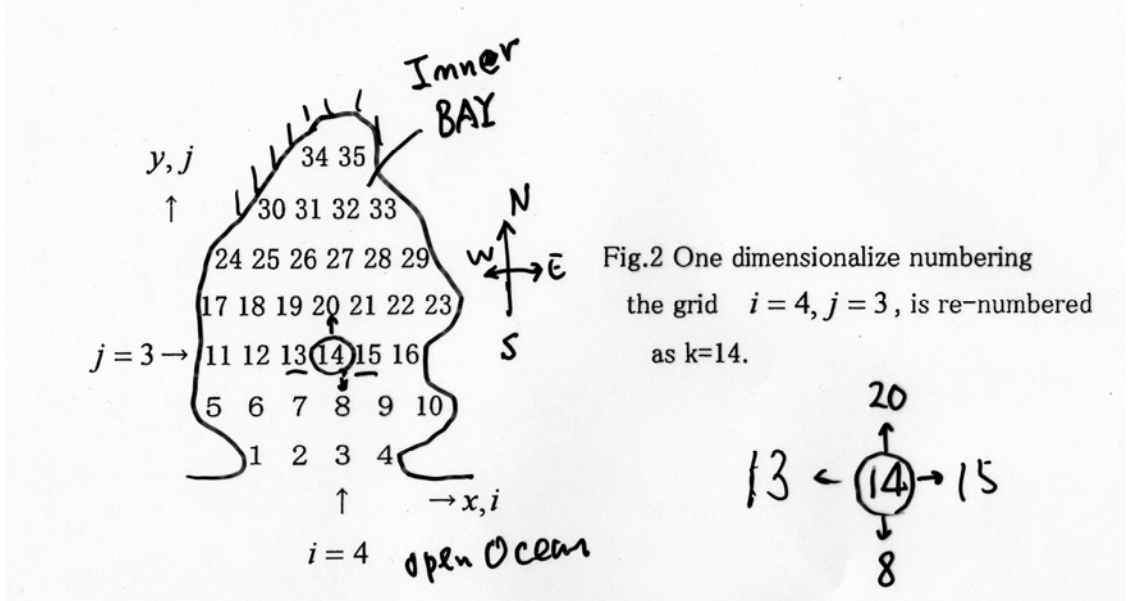 Inner
BAY
y, j
↑
34 35
30 31 32 33
24 25 26 27 28 29
17 18 19 20 21 22 23
j = 3 → 11 12 13 14 15 16
5 6 7 8 9 10
1 2 3 4
↑
→ x, i
i = 4
open Ocean
N
W E
S
Fig.2 One dimensionalize numbering
the grid i = 4, j = 3, is re-numbered
as k=14.
20
13 ← 14 → 15
8